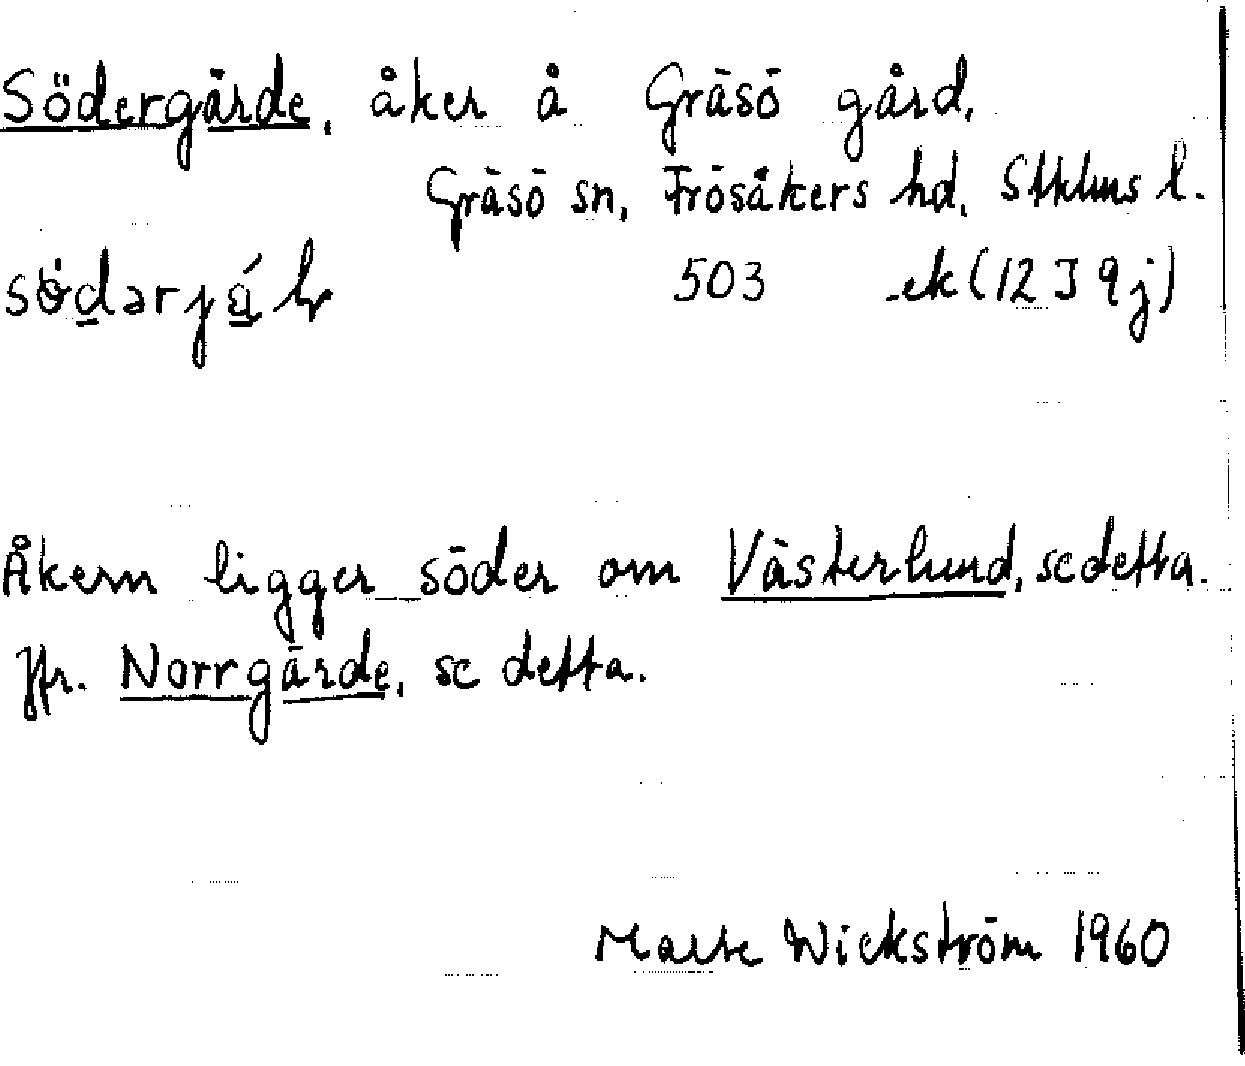 Södergärde, åker å Gräsö gård,
Gräsö sn, Frösåkers hd. Stklms l.
503 ek (12 I 9 j)
Åkern ligger söder om Västerlund, se detta.
Jfr. Norrgärde, se detta.
Wickström 1960